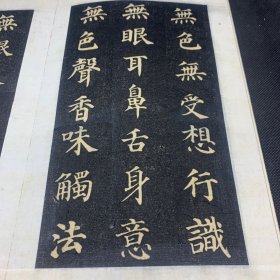 無色無受想行識
無眼耳鼻舌身意
無色聲香味觸法
無眼